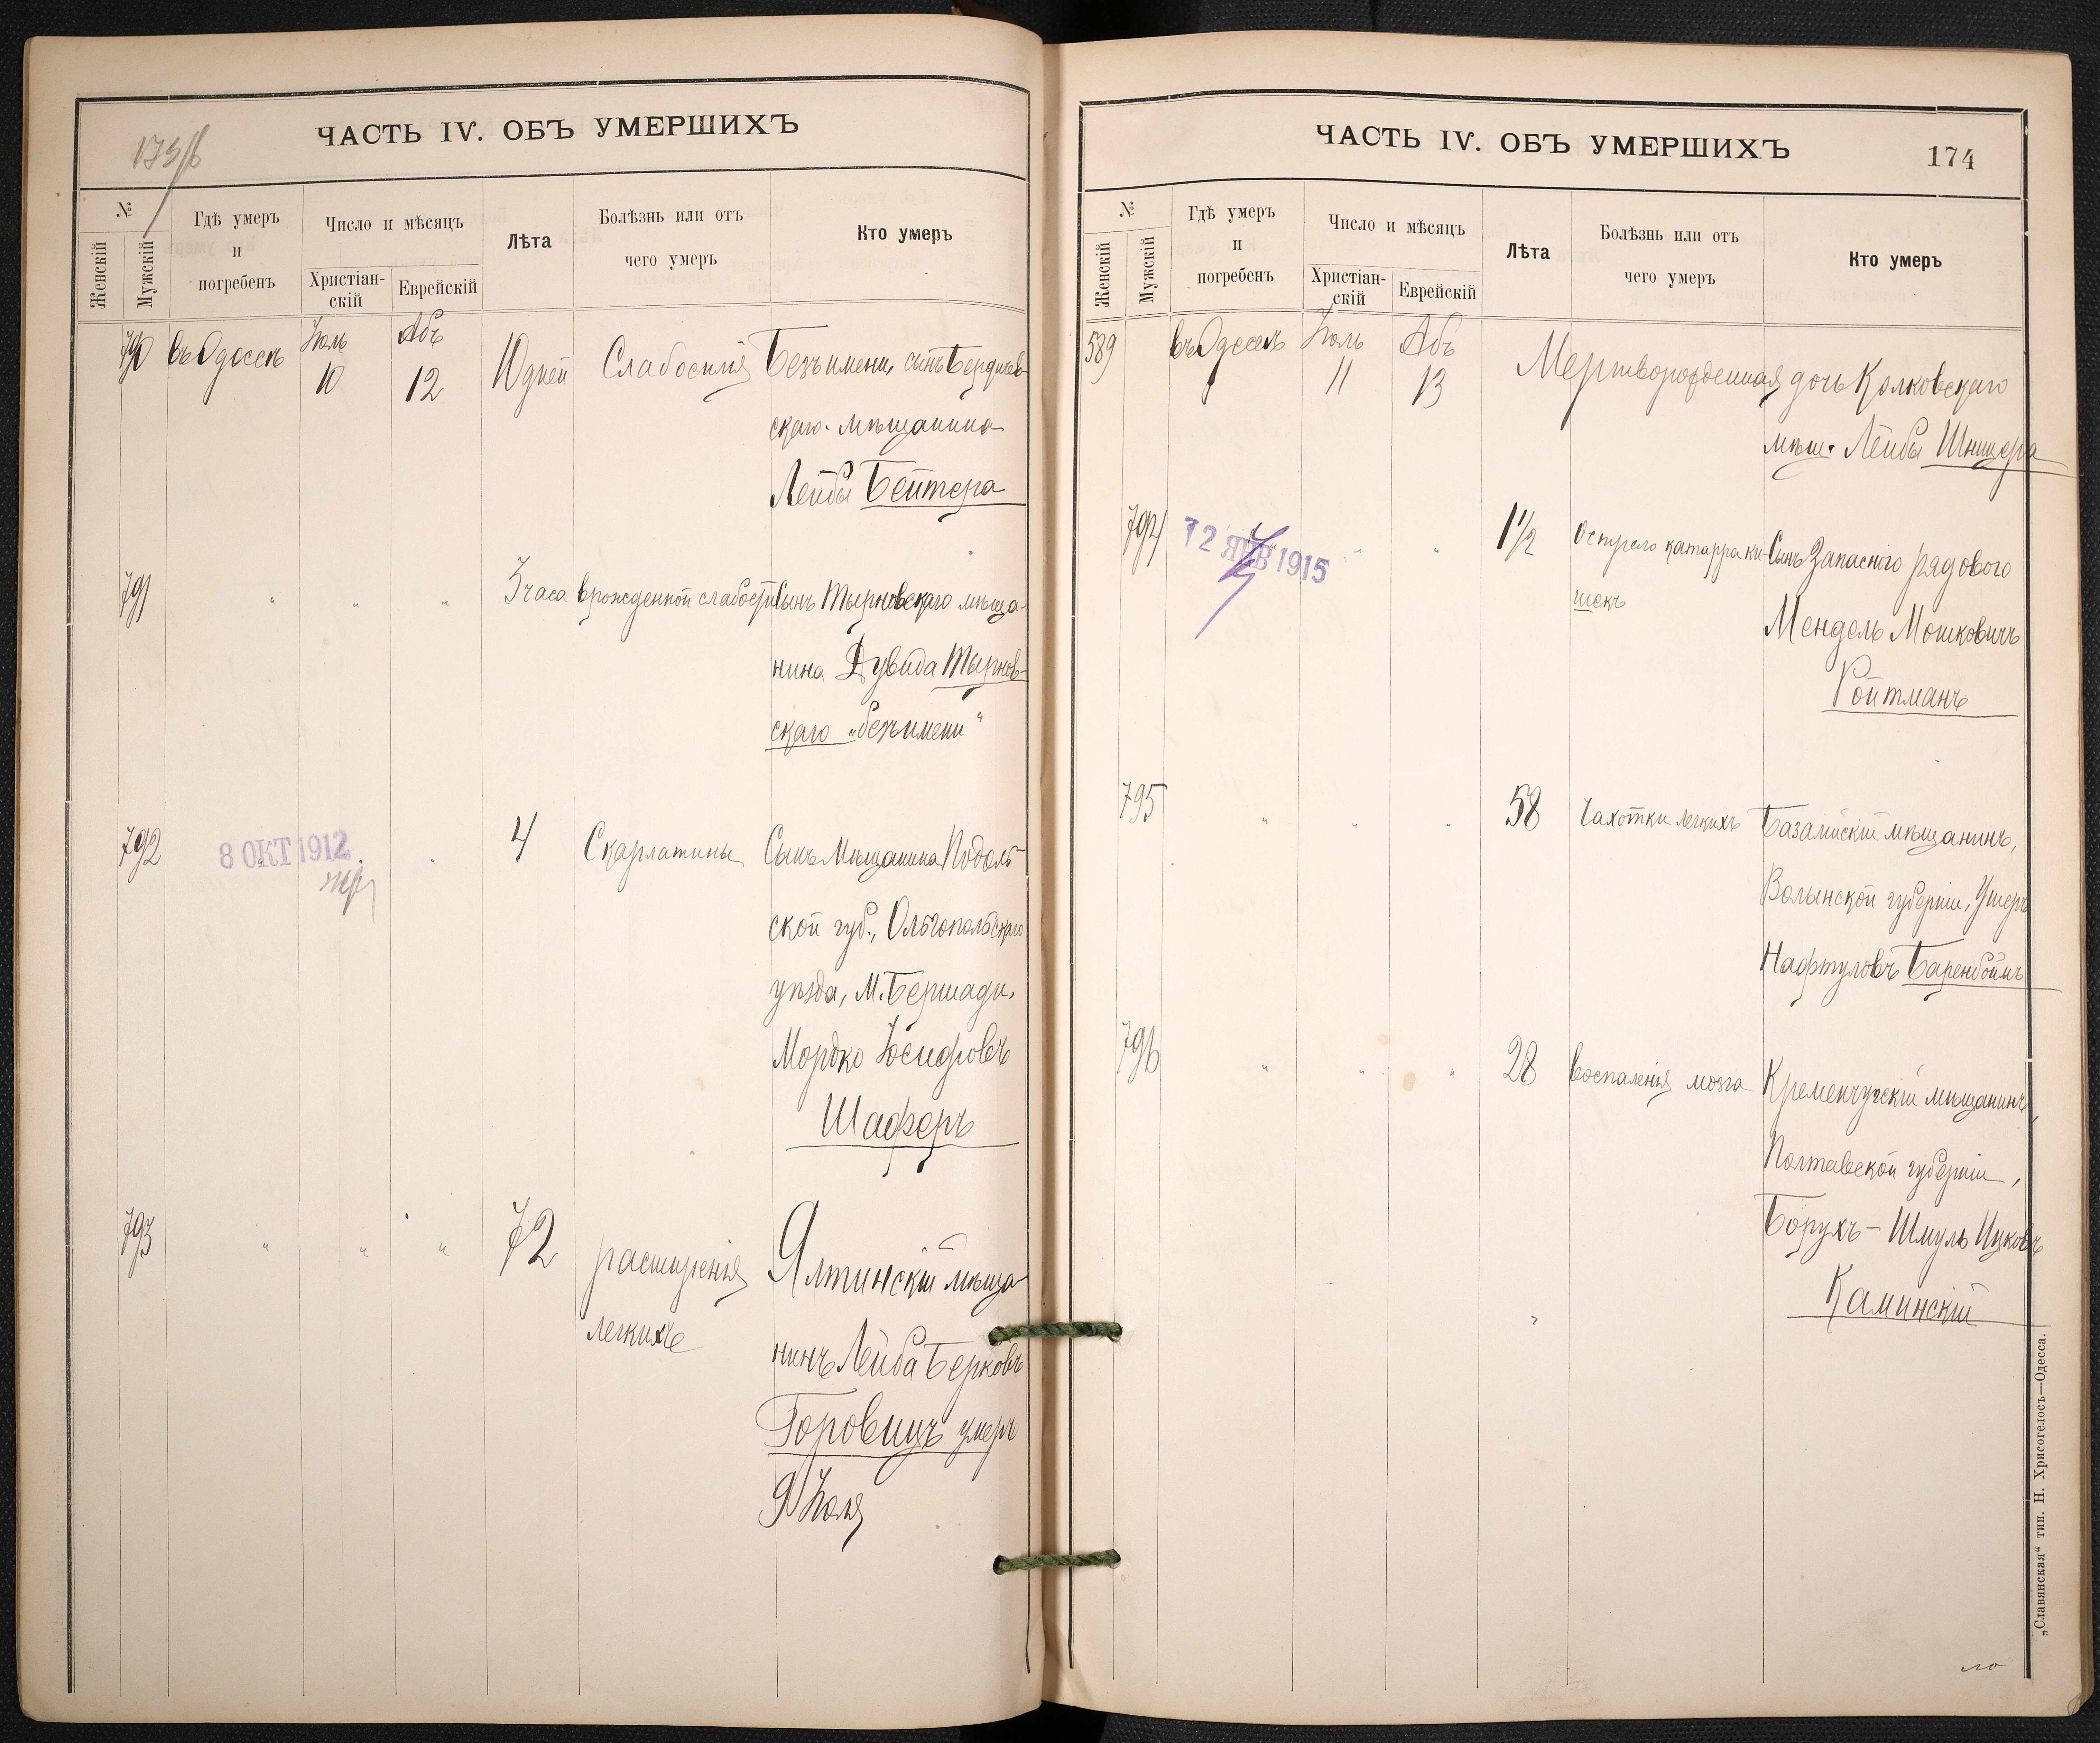 173/б
ЧАСТЬ IV. ОБЪ УМЕРШИХЪ
№
Женскій
Мужскій
Гдѣ умеръ
и
погребенъ
Число и мѣсяцъ
Христіан-
скій
Еврейскій
Лѣта
Болѣзнь или отъ
чего умеръ
Кто умеръ
790
въ Одессѣ
Іюль
10
Абъ
12
10 дней
Слабосилія
Безъ имени, сынъ Бердичев-
скаго мѣщанина
Лейбы Бейтера
791
"
"
"
3 часа
врожденной слабости
Сынъ Тырновскаго мѣща-
нина Дувида Тырнов-
скаго „безъ имени"
792
8 ОКТ 1912
"
4
Скарлатины
Сынъ Мѣщанина Подоль-
ской губ., Ольгопольскаго
уѣзда, М. Бершади,
Мордко Іосифовъ
Шаферъ
793
"
"
"
72
расширенія
легкихъ
Ялтинскій мѣща-
нинъ Лейба Берковъ
Горовицъ умеръ
9 Іюля
ЧАСТЬ IV. ОБЪ УМЕРШИХЪ
174
№
Женскій
Мужскій
Гдѣ умеръ
и
погребенъ
Число и мѣсяцъ
Христіан-
скій
Еврейскій
Лѣта
Болѣзнь или отъ
чего умеръ
Кто умеръ
589
въ Одессѣ
Іюль
11
Абъ
13
Мертворожденная дочь Колковскаго
мѣщ. Лейбы Шницера
794
12 ЯНВ 1915
"
"
1 1/2
Остраго катарра ки-
шекъ
Сынъ Запасного рядового
Мендель Мошковичъ
Ройтманъ
795
"
"
"
58
Чахотки легкихъ
Базалійскій мѣщанинъ,
Волынской губерніи, Ушеръ
Нафтуловъ Баренбоймъ
796
"
"
"
28
воспаленія мозга
Кременчугскій мѣщанинъ,
Полтавской губерніи,
Борухъ-Шмуль Ицковъ
Каминскій
„Славянская" тип. Н. Хрисогелосъ—Одесса.